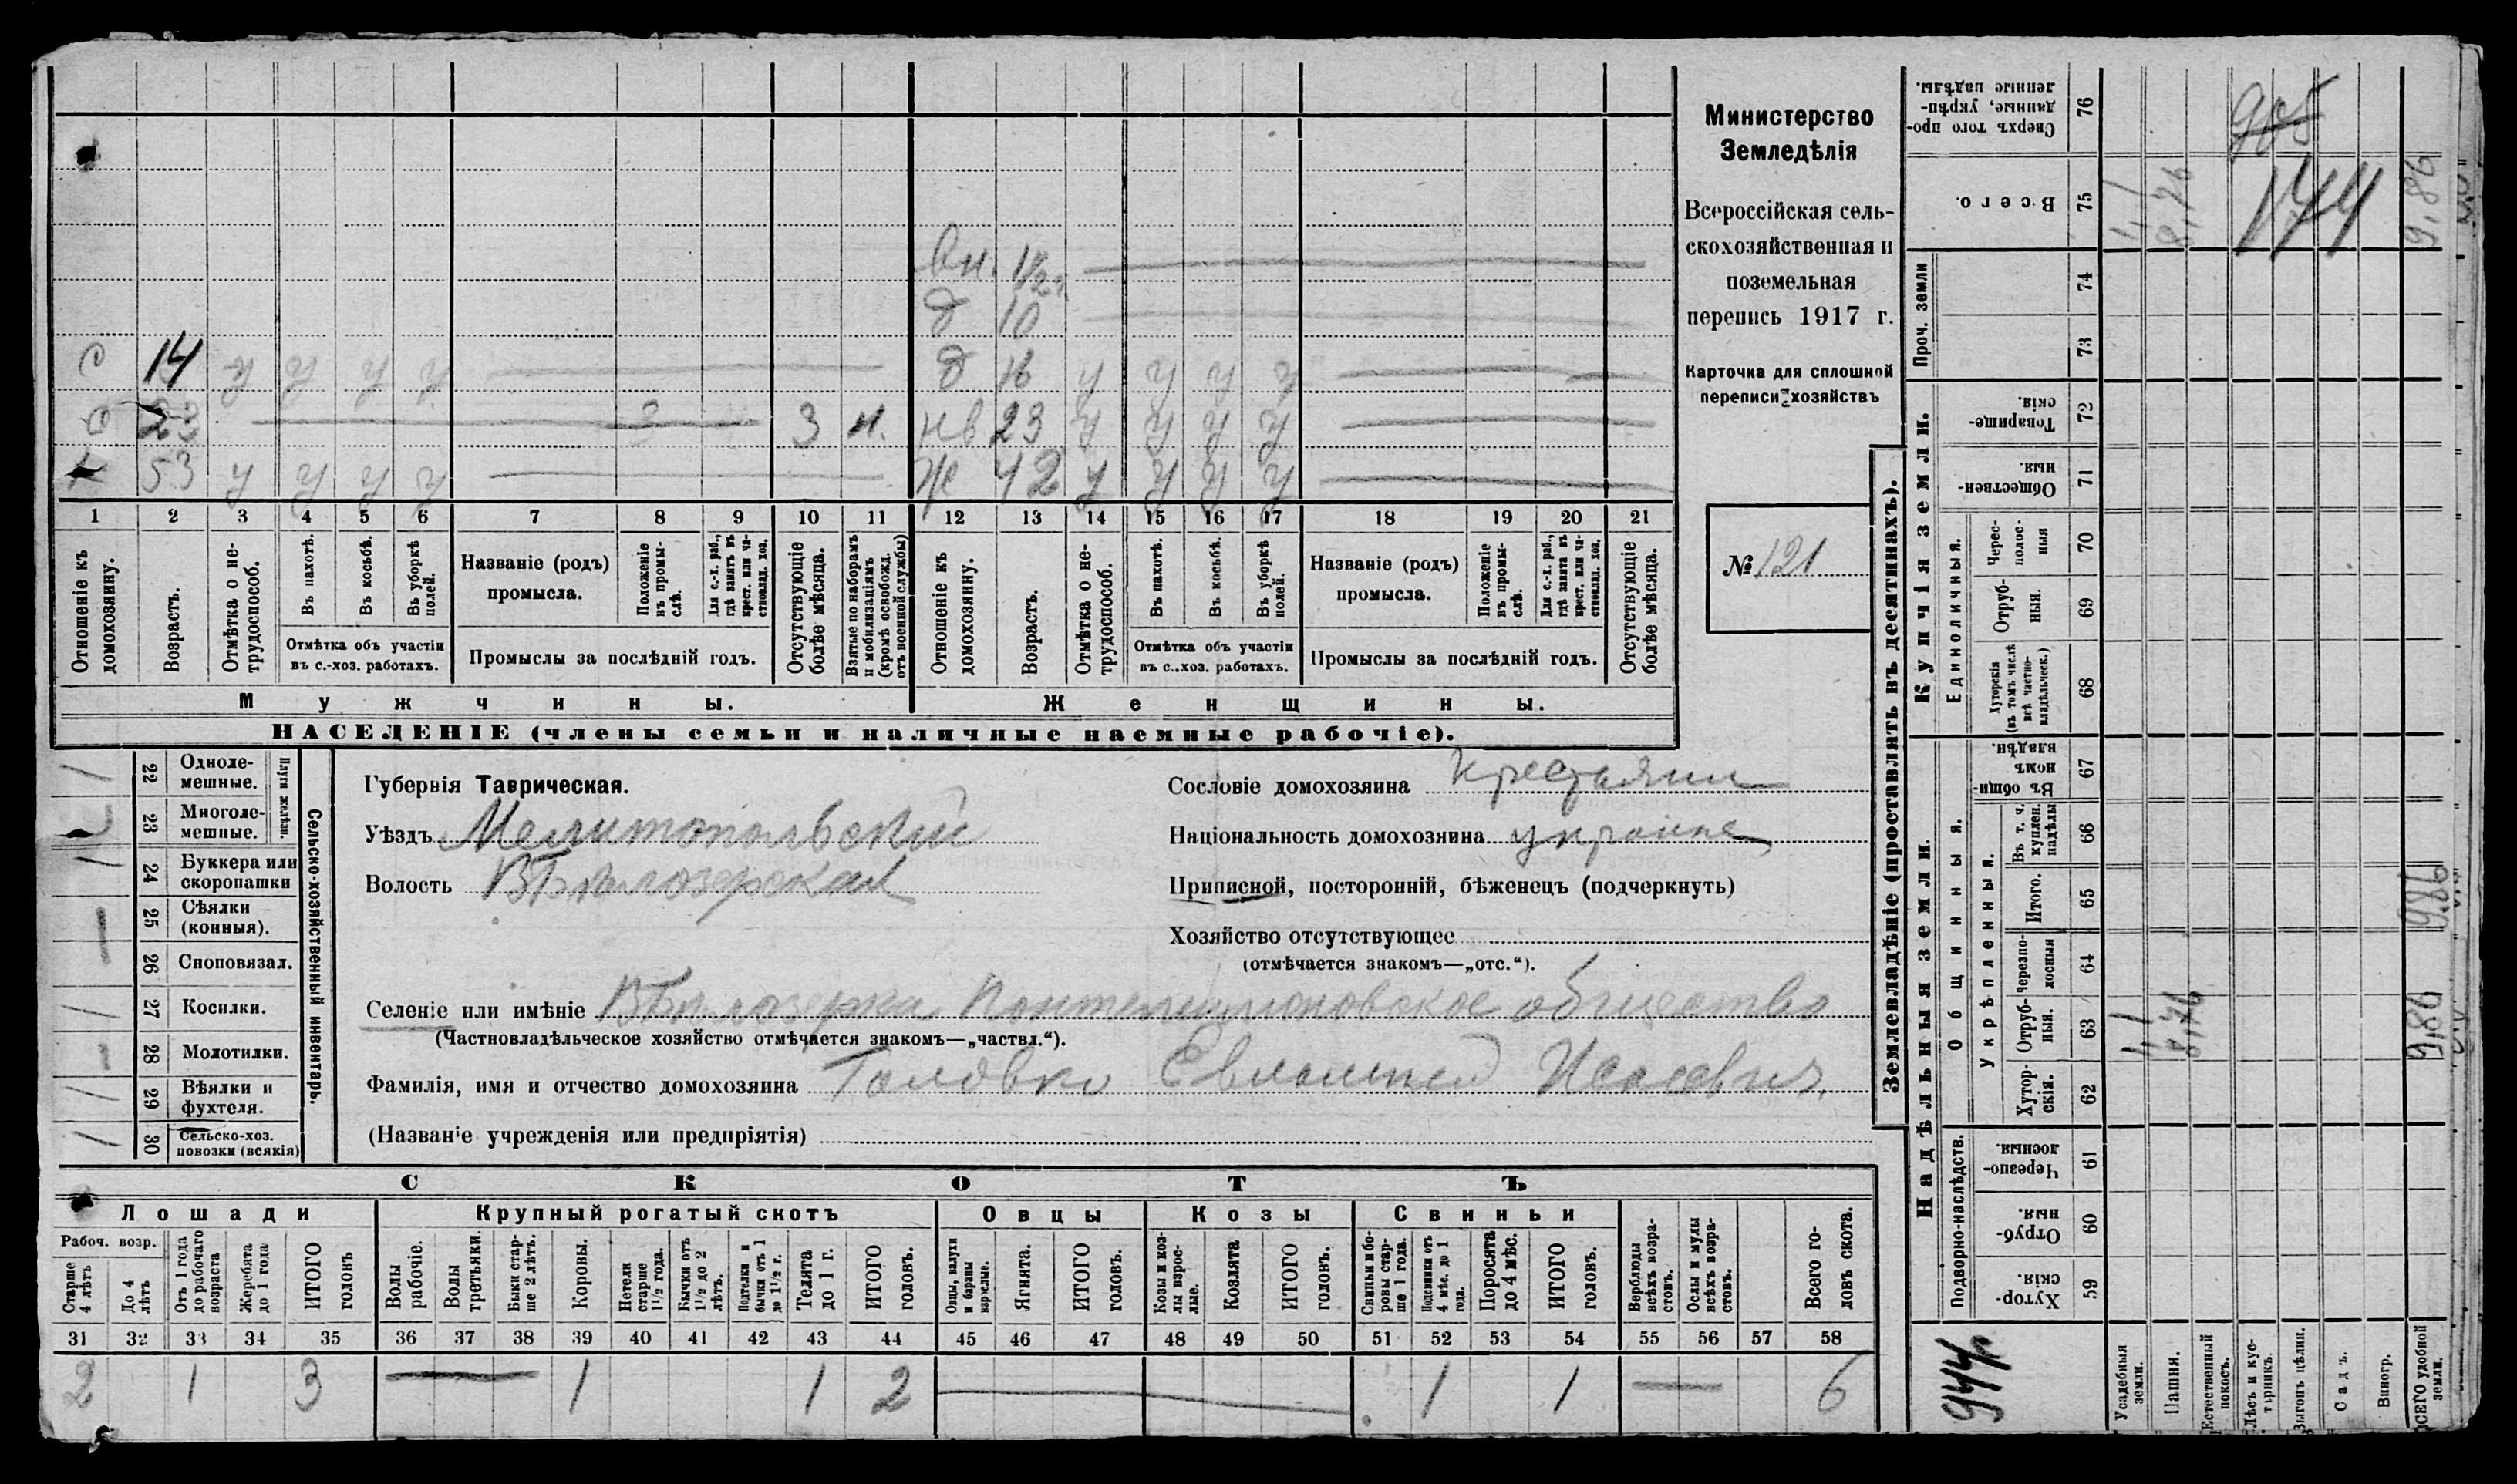 Министерство
Земледѣлія
Всероссійская сель-
скохозяйственная и
поземельная
перепись 1917 г.
Карточка для сплошной
переписи хозяйствъ
№ 121
Вн. 1½ г.
д 10
с 14 у у у у д 16 у у у у
с 23 3 3 м. нв 23 у у у у
х 53 у у у у ж 42 у у у у
1 2 3 4 5 6 7 8 9 10 11 12 13 14 15 16 17 18 19 20 21
Отношеніе къ домохозяину.
Возрастъ.
Отмѣтка о не-трудоспособ.
Въ пахотѣ.
Въ косьбѣ.
Въ уборкѣ полей.
Отмѣтка объ участіи въ с.-хоз. работахъ.
Названіе (родъ) промысла.
Положеніе въ промы-слѣ.
Для с.-х. раб., гдѣ занятъ въ крест. или ча-стновлад. хоз.
Промыслы за послѣдній годъ.
Отсутствующіе болѣе мѣсяца.
Взятые по наборамъ и мобилизаціямъ (кромѣ освобожд. отъ военной службы)
Отношеніе къ домохозяину.
Возрастъ.
Отмѣтка о не-трудоспособ.
Въ пахотѣ.
Въ косьбѣ.
Въ уборкѣ полей.
Отмѣтка объ участіи въ с.-хоз. работахъ.
Названіе (родъ) промысла.
Положеніе въ промы-слѣ.
Для с.-х. раб., гдѣ занята въ крест. или ча-стновлад. хоз.
Промыслы за послѣдній годъ.
Отсутствующіе болѣе мѣсяца.
Мужчины.
Женщины.
НАСЕЛЕНІЕ (члены семьи и наличные наемные рабочіе).
Сельско-хозяйственный инвентарь.
Плуги желѣзн.
22 Одноле-мешные. 1
23 Многоле-мешные.
24 Буккера или скоропашки 1
25 Сѣялки (конныя). —
26 Сноповязал.
27 Косилки. 1
28 Молотилки. —
29 Вѣялки и фухтеля. 1
30 Сельско-хоз. повозки (всякія) 1
Губернія Таврическая.
Уѣздъ Мелитопольскій
Волость В Бѣлозерская
Сословіе домохозяина крестьянин
Національность домохозяина украине
Приписной, посторонній, бѣженецъ (подчеркнуть)
Хозяйство отсутствующее
(отмѣчается знакомъ—„отс.“).
Селеніе или имѣніе В Бѣлозерка Пантелеимоновское общество
(Частновладѣльческое хозяйство отмѣчается знакомъ—„частвл.“).
Фамилія, имя и отчество домохозяина Головко Евлампей Исаевич
(Названіе учрежденія или предпріятія)
СКОТЪ
Лошади Крупный рогатый скотъ Овцы Козы Свиньи
Рабоч. возр.
Старше 4 лѣтъ
До 4 лѣтъ
Отъ 1 года до рабочаго возраста
Жеребята до 1 года
ИТОГО головъ
Волы рабочіе.
Волы третьяки.
Быки стар-ше 2 лѣтъ.
Коровы.
Нетели старше 1½ года.
Бычки отъ 1½ до 2 лѣтъ.
Подтелки и бычки отъ 1 до 1½ г.
Телята до 1 г.
ИТОГО головъ.
Овцы, валухи и бараны взрослые.
Ягнята.
ИТОГО головъ.
Козы и коз-лы взрос-лые.
Козлята
ИТОГО головъ.
Свиньи и бо-ровы стар-ше 1 года.
Подсвинки отъ 4 мѣс. до 1 года.
Поросята до 4 мѣс.
ИТОГО головъ.
Верблюды всѣхъ возра-стовъ.
Ослы и мулы всѣхъ возра-стовъ.
Всего го-ловъ скота.
31 32 33 34 35 36 37 38 39 40 41 42 43 44 45 46 47 48 49 50 51 52 53 54 55 56 57 58
2 1 3 — 1 1 2 — 1 1 — 6
Землевладѣніе (проставлять въ десятинахъ).
Сверхъ того про-данные, укрѣп-ленные надѣлы. 76
Всего. 75
Проч. земли 74 73
Купчія земли.
Товарище-скія. 72
Обществен-ныя. 71
Единоличныя.
Черес-полос-ныя 70
Отруб-ныя. 69
Хуторскія (въ томъ числѣ всѣ частно-владѣльческ.) 68
Надѣльныя земли.
Общинныя.
Въ общи-номъ владѣн. 67
Укрѣпленныя.
Въ т. ч. куплен. надѣлы 66
Итого. 65
Черезпо-лосныя 64
Отруб-ныя. 63
Хутор-скія. 62
Подворно-наслѣдств.
Черезпо-лосныя 61
Отруб-ныя. 60
Хутор-скія. 59
Усадебныя земли.
Пашня.
Естественный покосъ.
Лѣсъ и кус-тарникъ.
Выгонъ цѣлин.
Садъ.
Виногр.
ВСЕГО удобной земли.
905
174
944
1,1
8,76
9,86
9,86
1,1
8,76
9,86